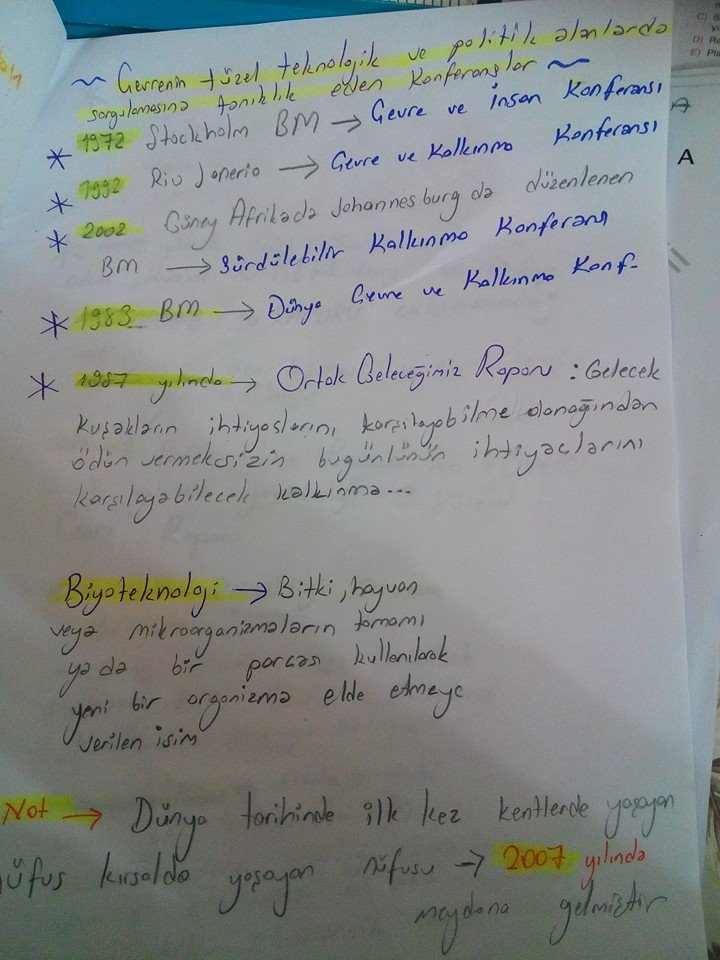 ~ Çevrenin tüzel teknolojik ve politik alanlarda
sorgulamasına tanıklık eden Konferanslar ~
* 1972 Stockholm BM → Çevre ve İnsan Konferansı
* 1992 Rio Janerio → Çevre ve Kalkınma Konferansı
* 2002 Güney Afrikada Johannesburg da düzenlenen
BM → Sürdülebilir Kalkınma Konferans
* 1983 BM → Dünya Çevre ve Kalkınma Konf-
* 1987 yılında → Ortak Geleceğimiz Raporu : Gelecek
kuşakların ihtiyaslarını karşılayabilme olanağından
ödün vermeksizin bugünlünün ihtiyaçlarını
karşılayabilecek kalkınma...
Biyoteknoloji → Bitki, hayvan
veya mikroorganizmaların tamamı
ya da bir parçası kullanılarak
yeni bir organizma elde etmeye
verilen isim
Not → Dünya tarihinde ilk kez kentlerde yaşayan
nüfus kırsalda yaşayan nüfusu → 2007 yılında
meydana gelmiştir
C)
D)
E)
A
A